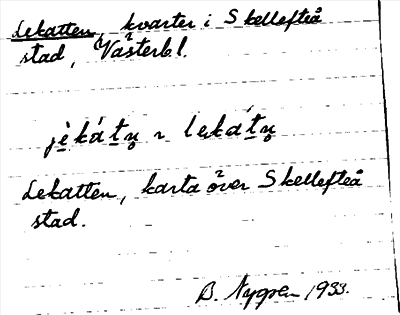 Lekatten, kvarter i Skellefteå
stad, Västerb l.
jèkát̲n̥ ~ lekát̲n̥
Lekatten, karta över Skellefteå
stad.
B. Nygren 1933.